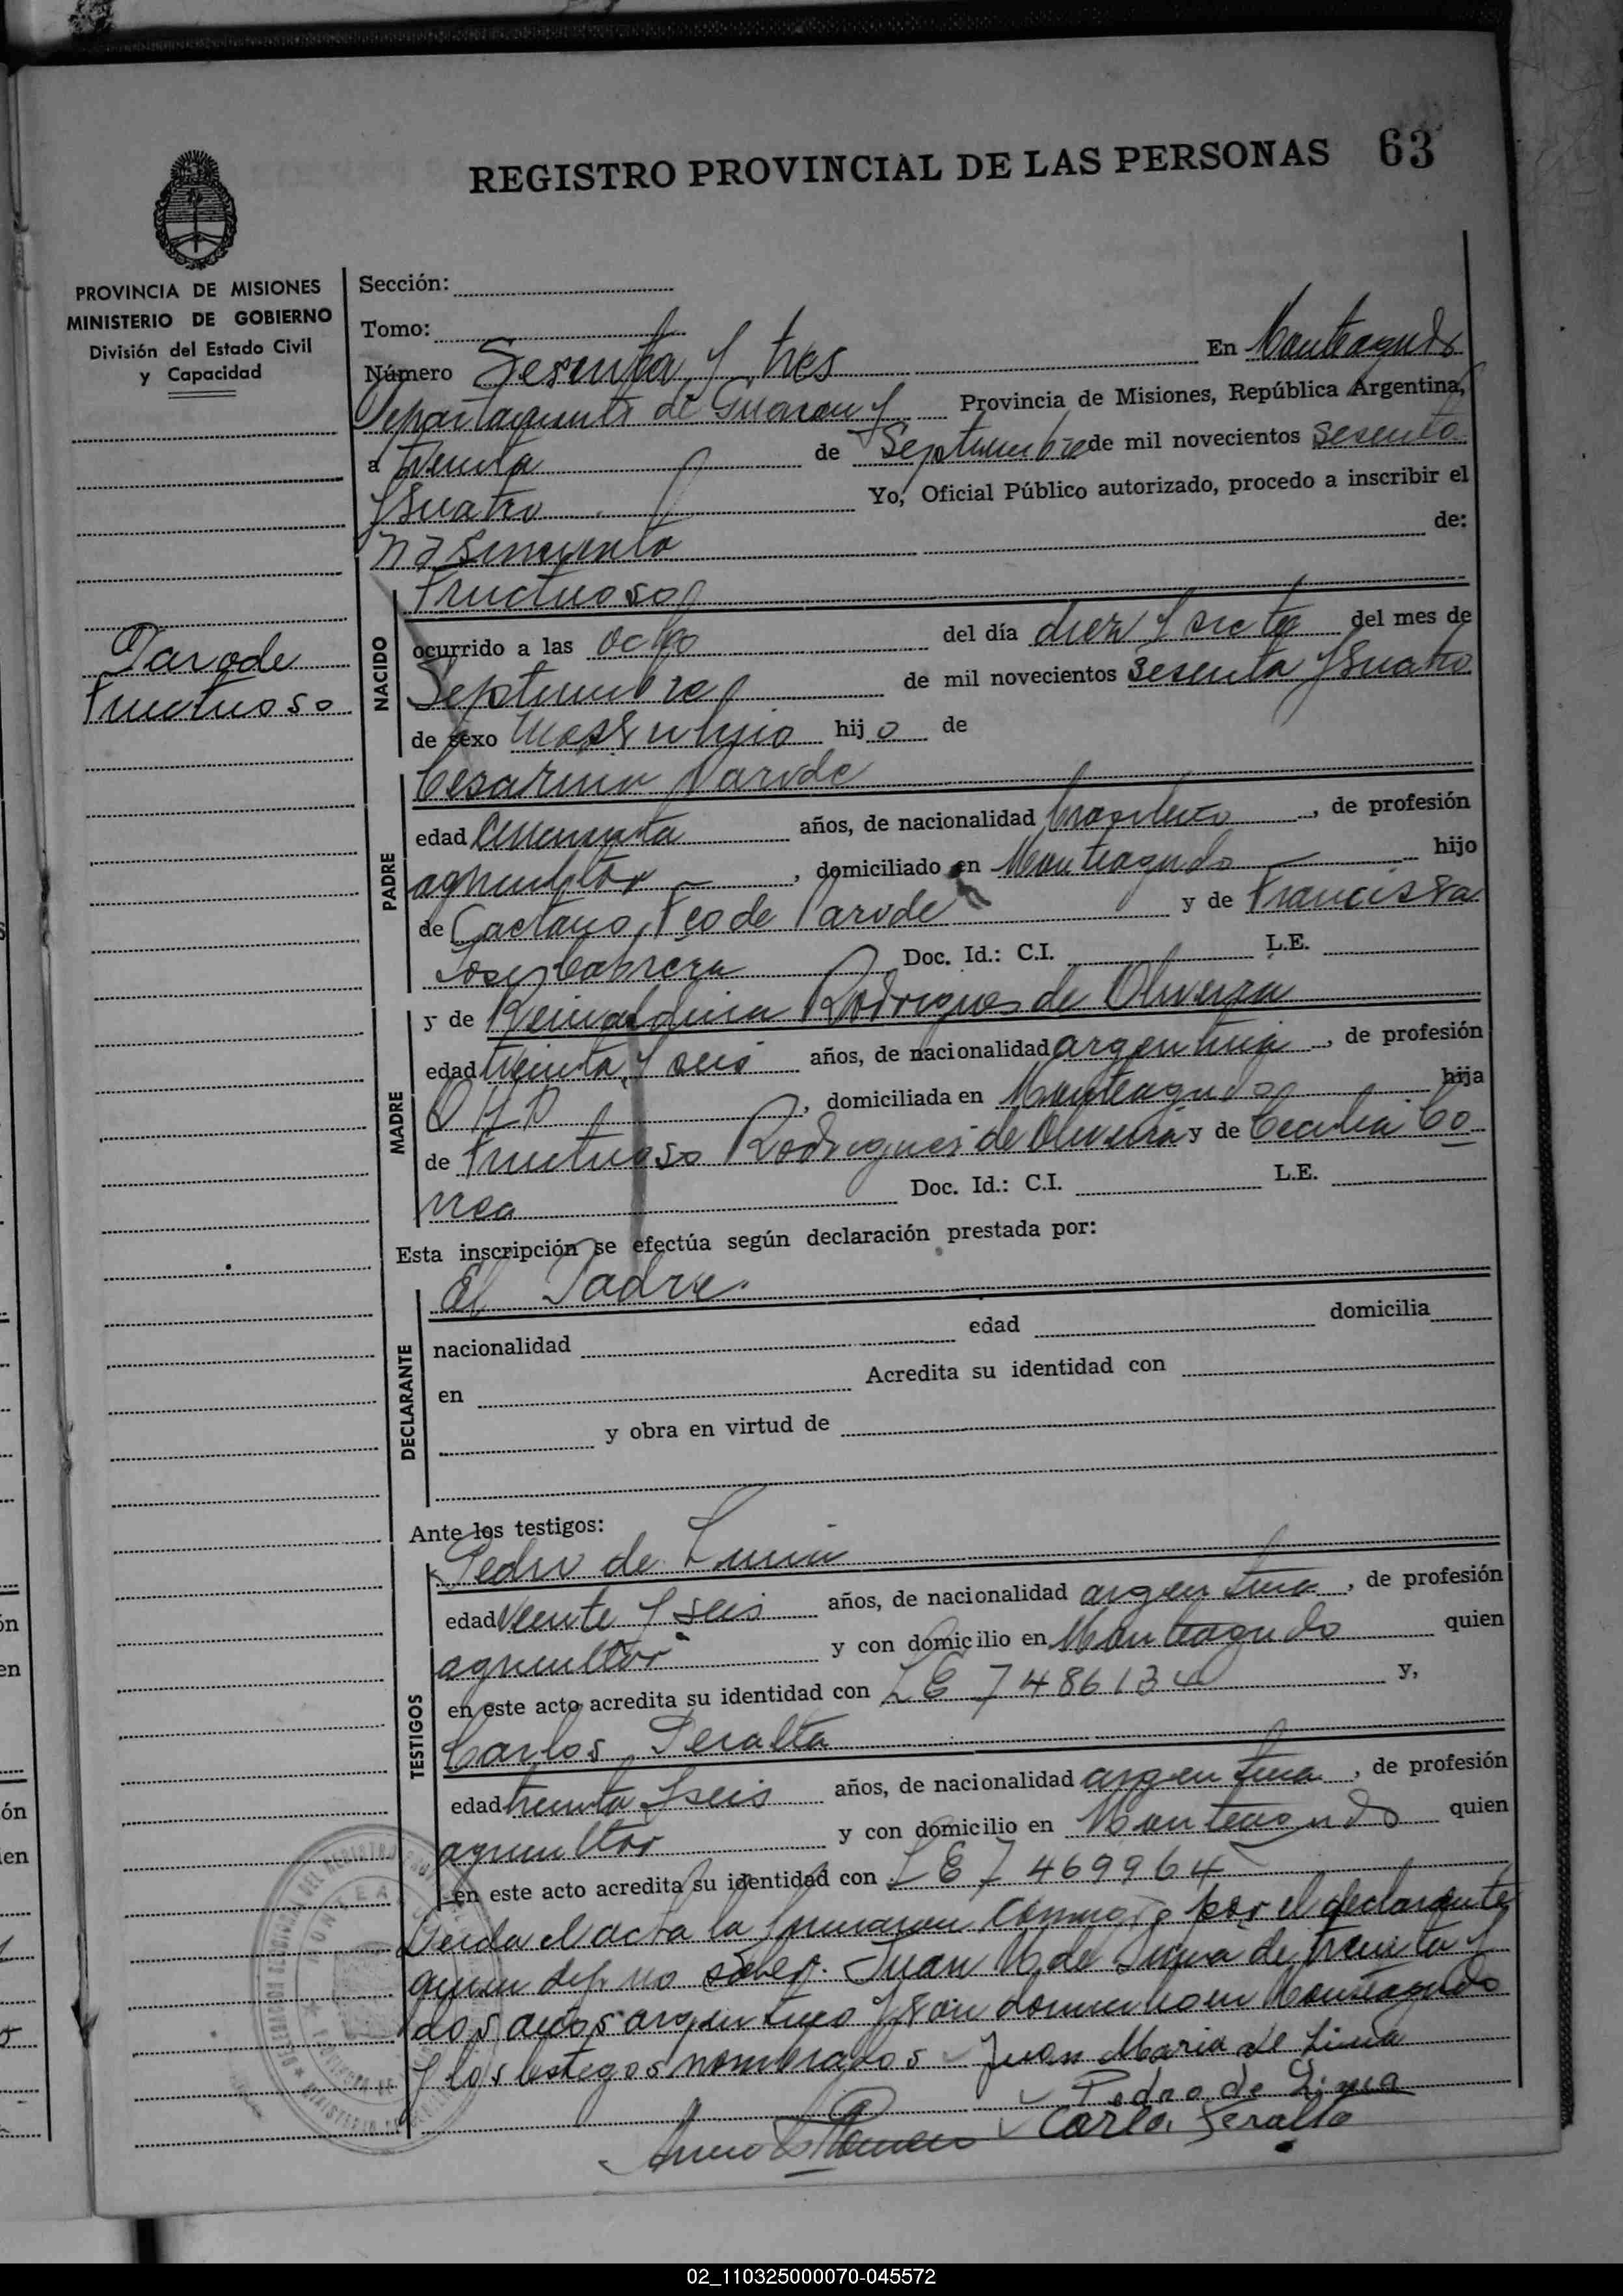 REGISTRO PROVINCIAL DE LAS PERSONAS 63
PROVINCIA DE MISIONES
MINISTERIO DE GOBIERNO
División del Estado Civil
y Capacidad
Parode
Fructuoso
Sección:
Tomo:
Número Sesenta y tres En Monteagudo
Departamento de Guarany Provincia de Misiones, República Argentina,
a treinta de Septiembre de mil novecientos sesenta
y Cuatro Yo, Oficial Público autorizado, procedo a inscribir el
de:
NACIDO
Fructuoso
ocurrido a las ocho del día diez y siete del mes de
Septiembre de mil novecientos sesenta y Cuatro
de sexo hijo de
PADRE
Cesarino Parode
edad años, de nacionalidad brasilero, de profesión
agricultor, domiciliado en Monteagudo hijo
de Caetano Parode y de
Cabrera Doc. Id.: C.I. L.E.
MADRE
y de Reinaldina Rodrigues de Oliveira
edad treinta y seis años, de nacionalidad argentina, de profesión
domiciliada en Monteagudo hija
de Fructuoso Rodrigues de Oliveira y de Cecilia Co
rrea Doc. Id.: C.I. L.E.
Esta inscripción se efectúa según declaración prestada por:
DECLARANTE
El Padre.
nacionalidad edad domicilia
en Acredita su identidad con
y obra en virtud de
Ante los testigos:
TESTIGOS
Pedro de Lima
edad veinte y seis años, de nacionalidad argentina, de profesión
agricultor y con domicilio en Monteagudo quien
en este acto acredita su identidad con LE 7486134 y,
Carlos Peralta
edad treinta y seis años, de nacionalidad argentina, de profesión
agricultor y con domicilio en Monteagudo quien
en este acto acredita su identidad con LE 7469964
Leida el acta la firmaron conmigo por el declarante
quien dijo no saber. Juan M de Lima de treinta y
dos años argentino y con domicilio en Monteagudo
y los testigos nombrados Juan Maria de Lima
Pedro de Lima
Carlos Peralta
02_110325000070-045572